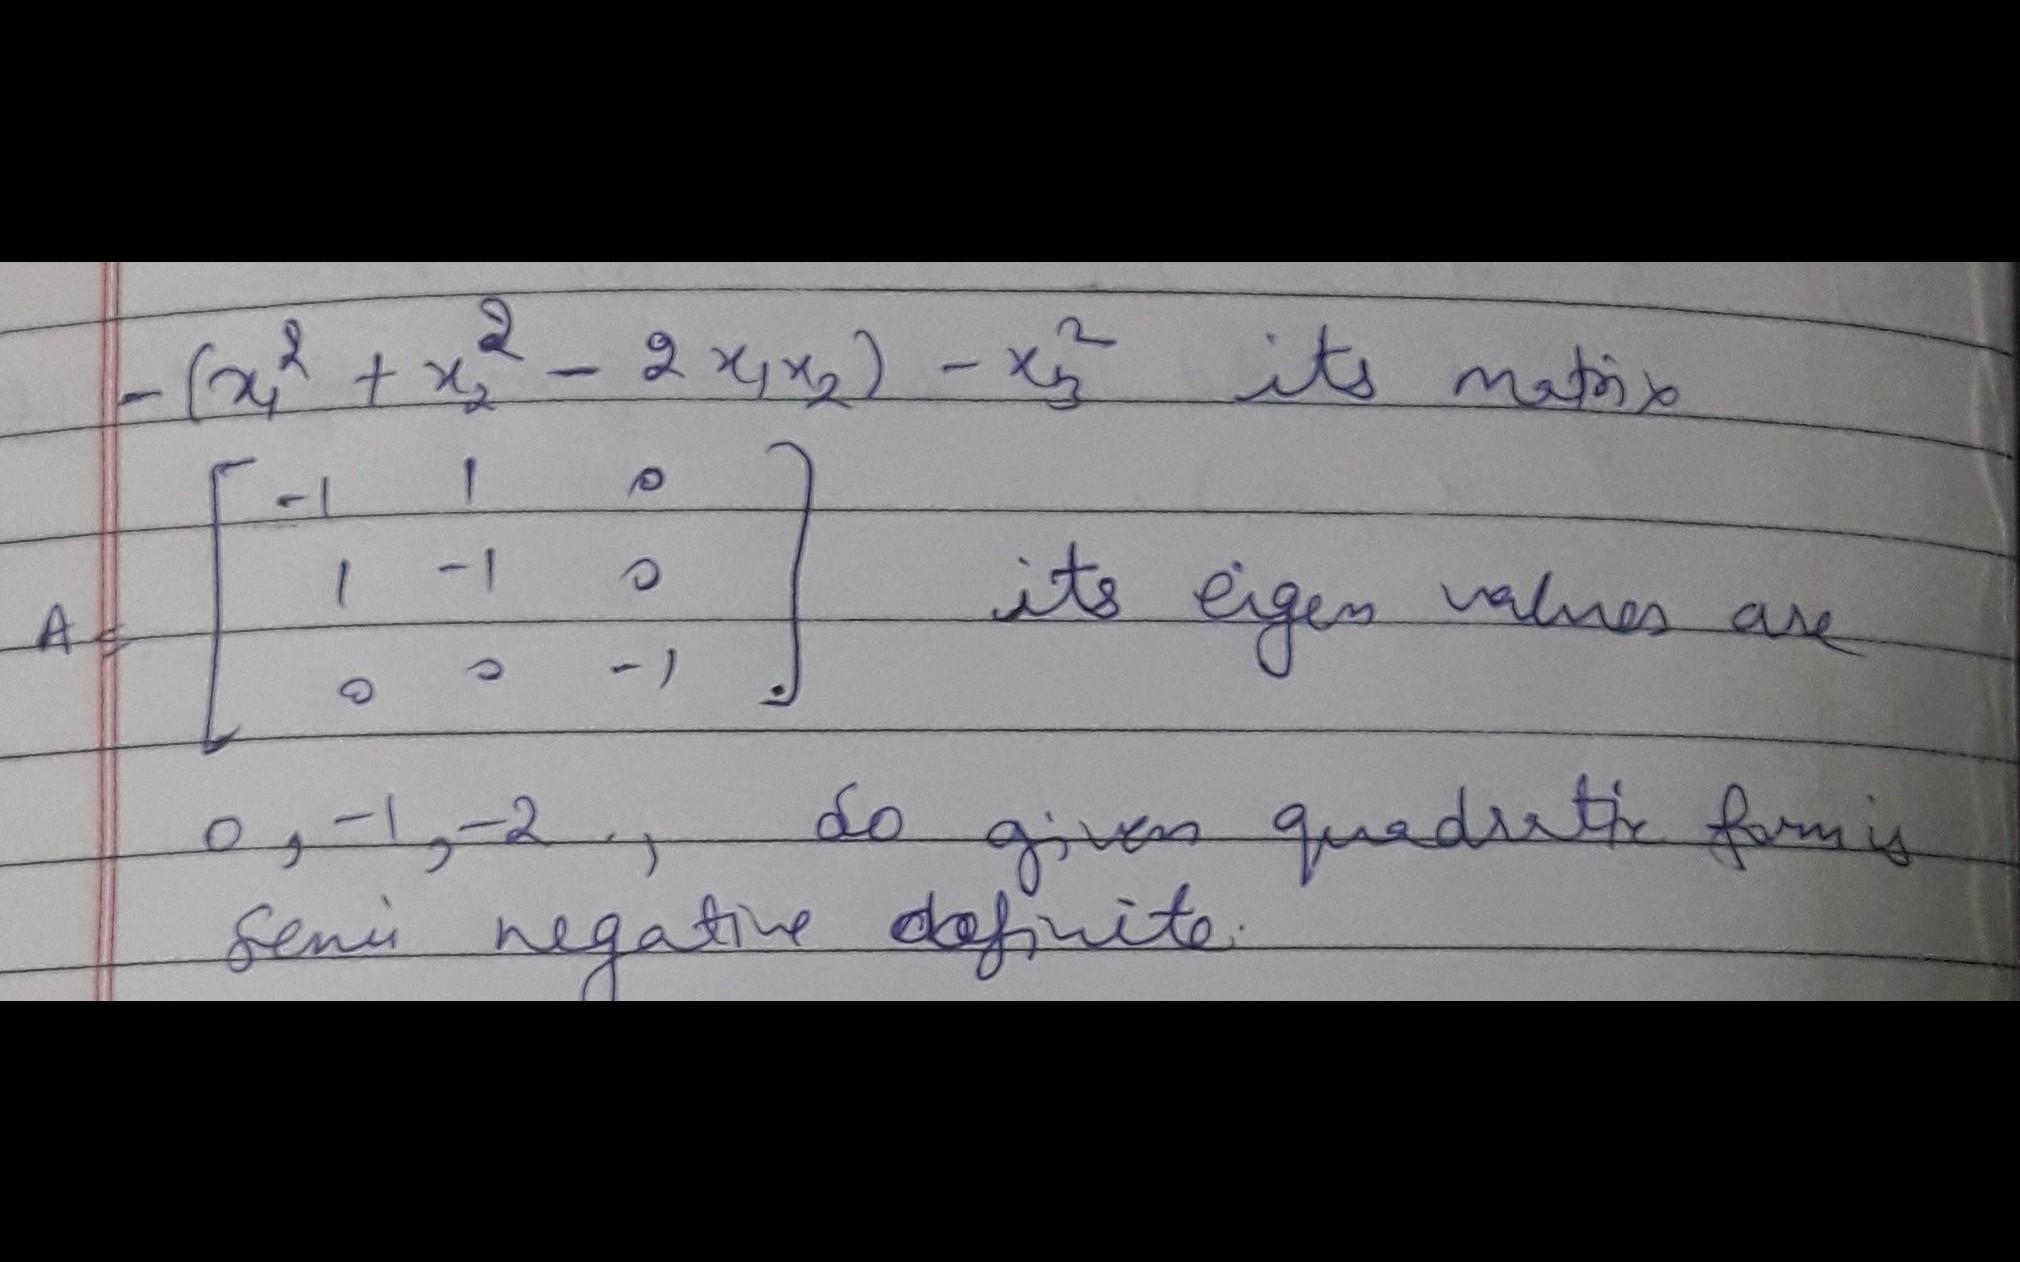 -(x₁² + x₂² - 2x₁x₂) - x₃² its matrix
-1 1 0
1 -1 0
A = its eigen values are
0 0 -1
0, -1, -2, so given quadratic form is
semi negative definite.